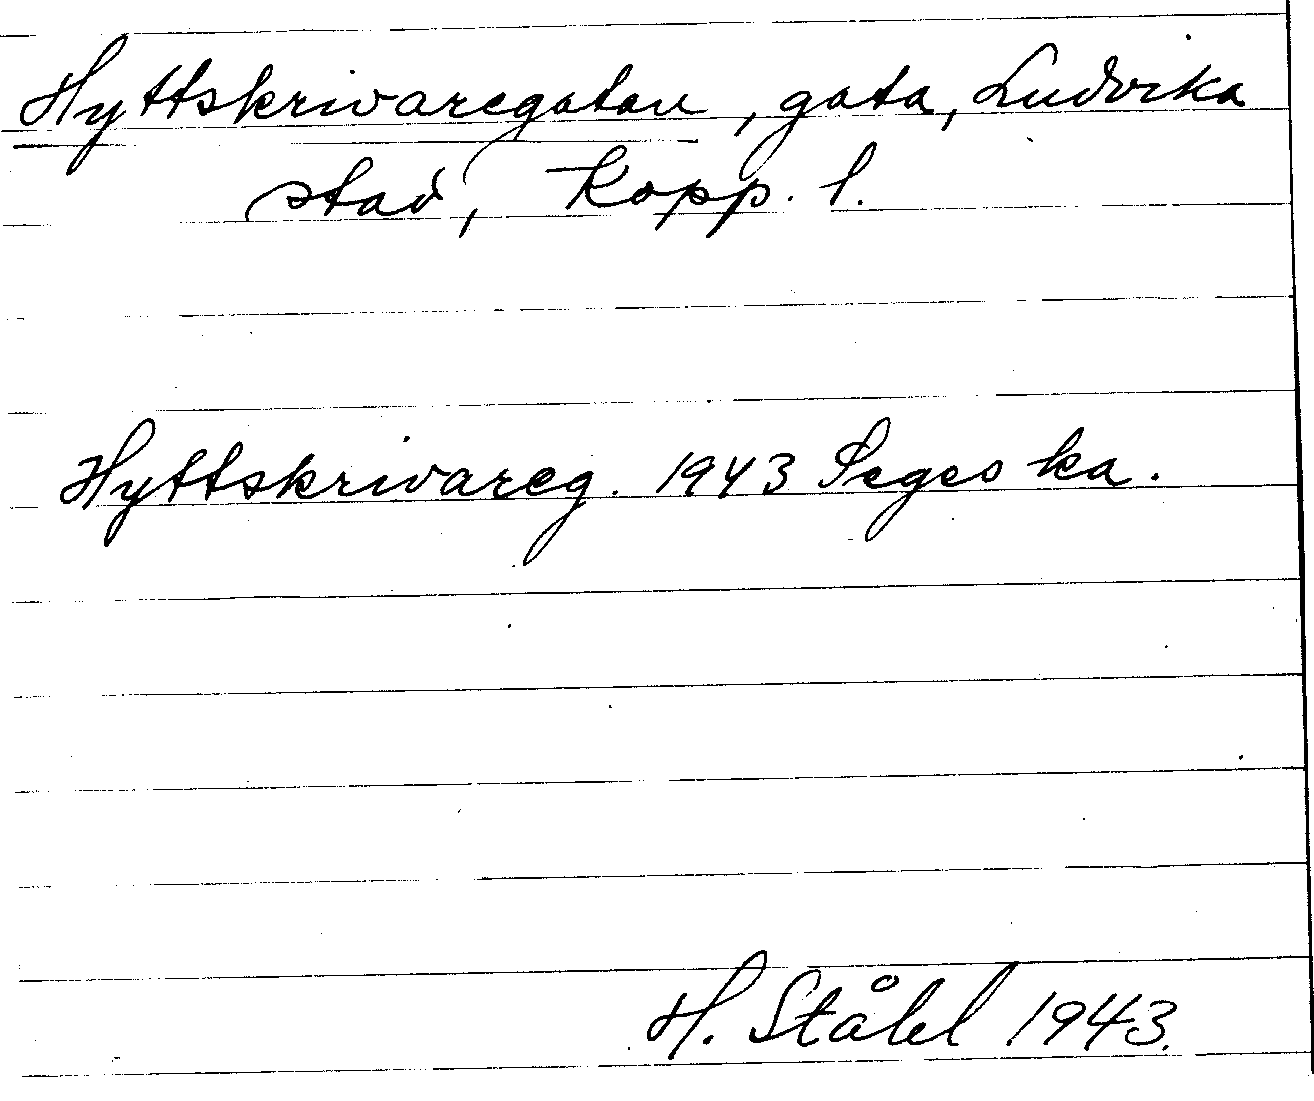 Hyttskrivaregatan, gata, Ludvika
stad, Kopp. l.
Hyttskrivareg. 1943 Seges ka.
H. Ståhl 1943.